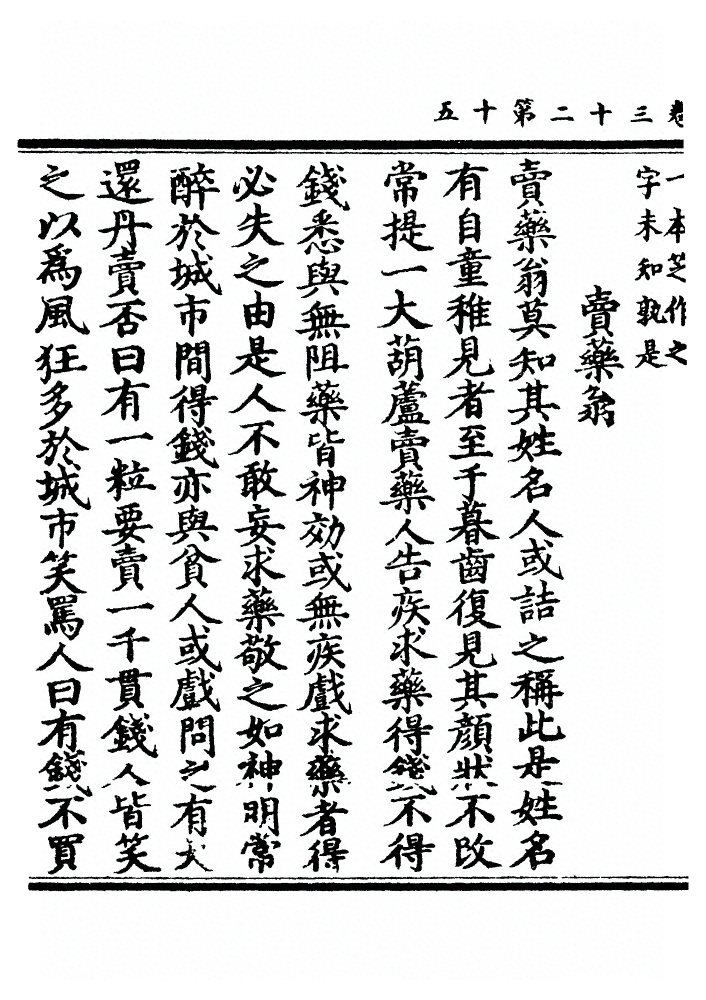 卷三十二第十五
一本芝作之
字未知孰是
賣藥翁
賣藥翁莫知其姓名人或詰之稱此是姓名
有自童稚見者至于暮齒復見其顔狀不改
常提一大葫蘆賣藥人告疾求藥得錢不得
錢悉與無阻藥皆神効或無疾戲求藥者得
必失之由是人不敢妄求藥敬之如神明常
醉於城市間得錢亦與貧人或戲問之有大
還丹賣否曰有一粒要賣一千貫錢人皆笑
之以爲風狂多於城市笑罵人曰有錢不買